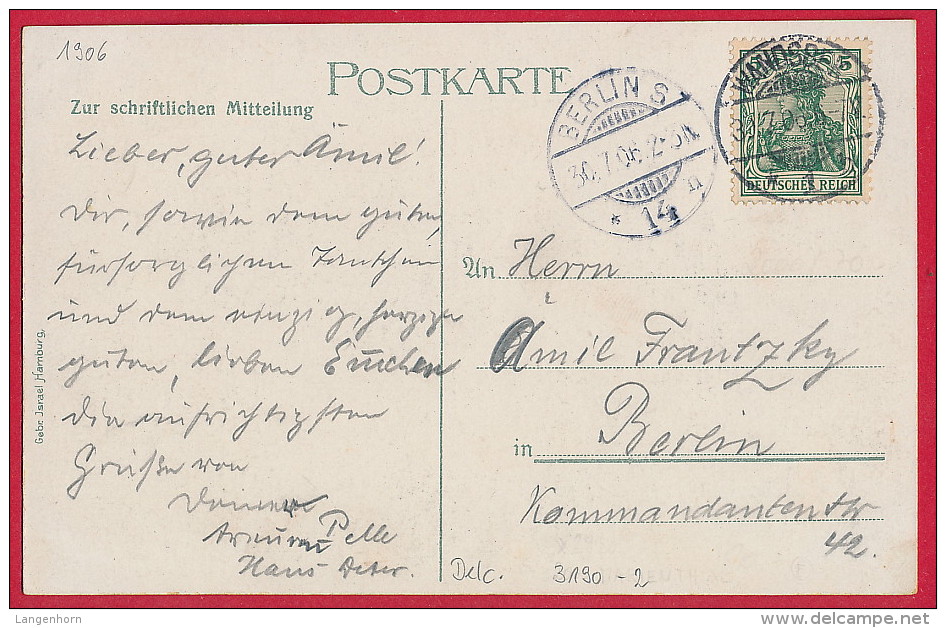 1906
POSTKARTE
Zur schriftlichen Mitteilung
Lieber, guter Ämil!
Dir, sowie dem guten,
fürsorglichen Tantchen
und dem einzig, herzigen
guten, lieben
die aufrichtigsten
Grüße von
Deinem
Pelle
Hans
An Herrn
Ämil Frantzky
in Berlin
Kommandantenstr
42.
BERLIN S
30.7.06.2-3N.
* 14 n
WANDSB
7.06
DEUTSCHES REICH
Gebr. Israel Hamburg.
Delc. 3190-2
Langenhorn
delcampe.net